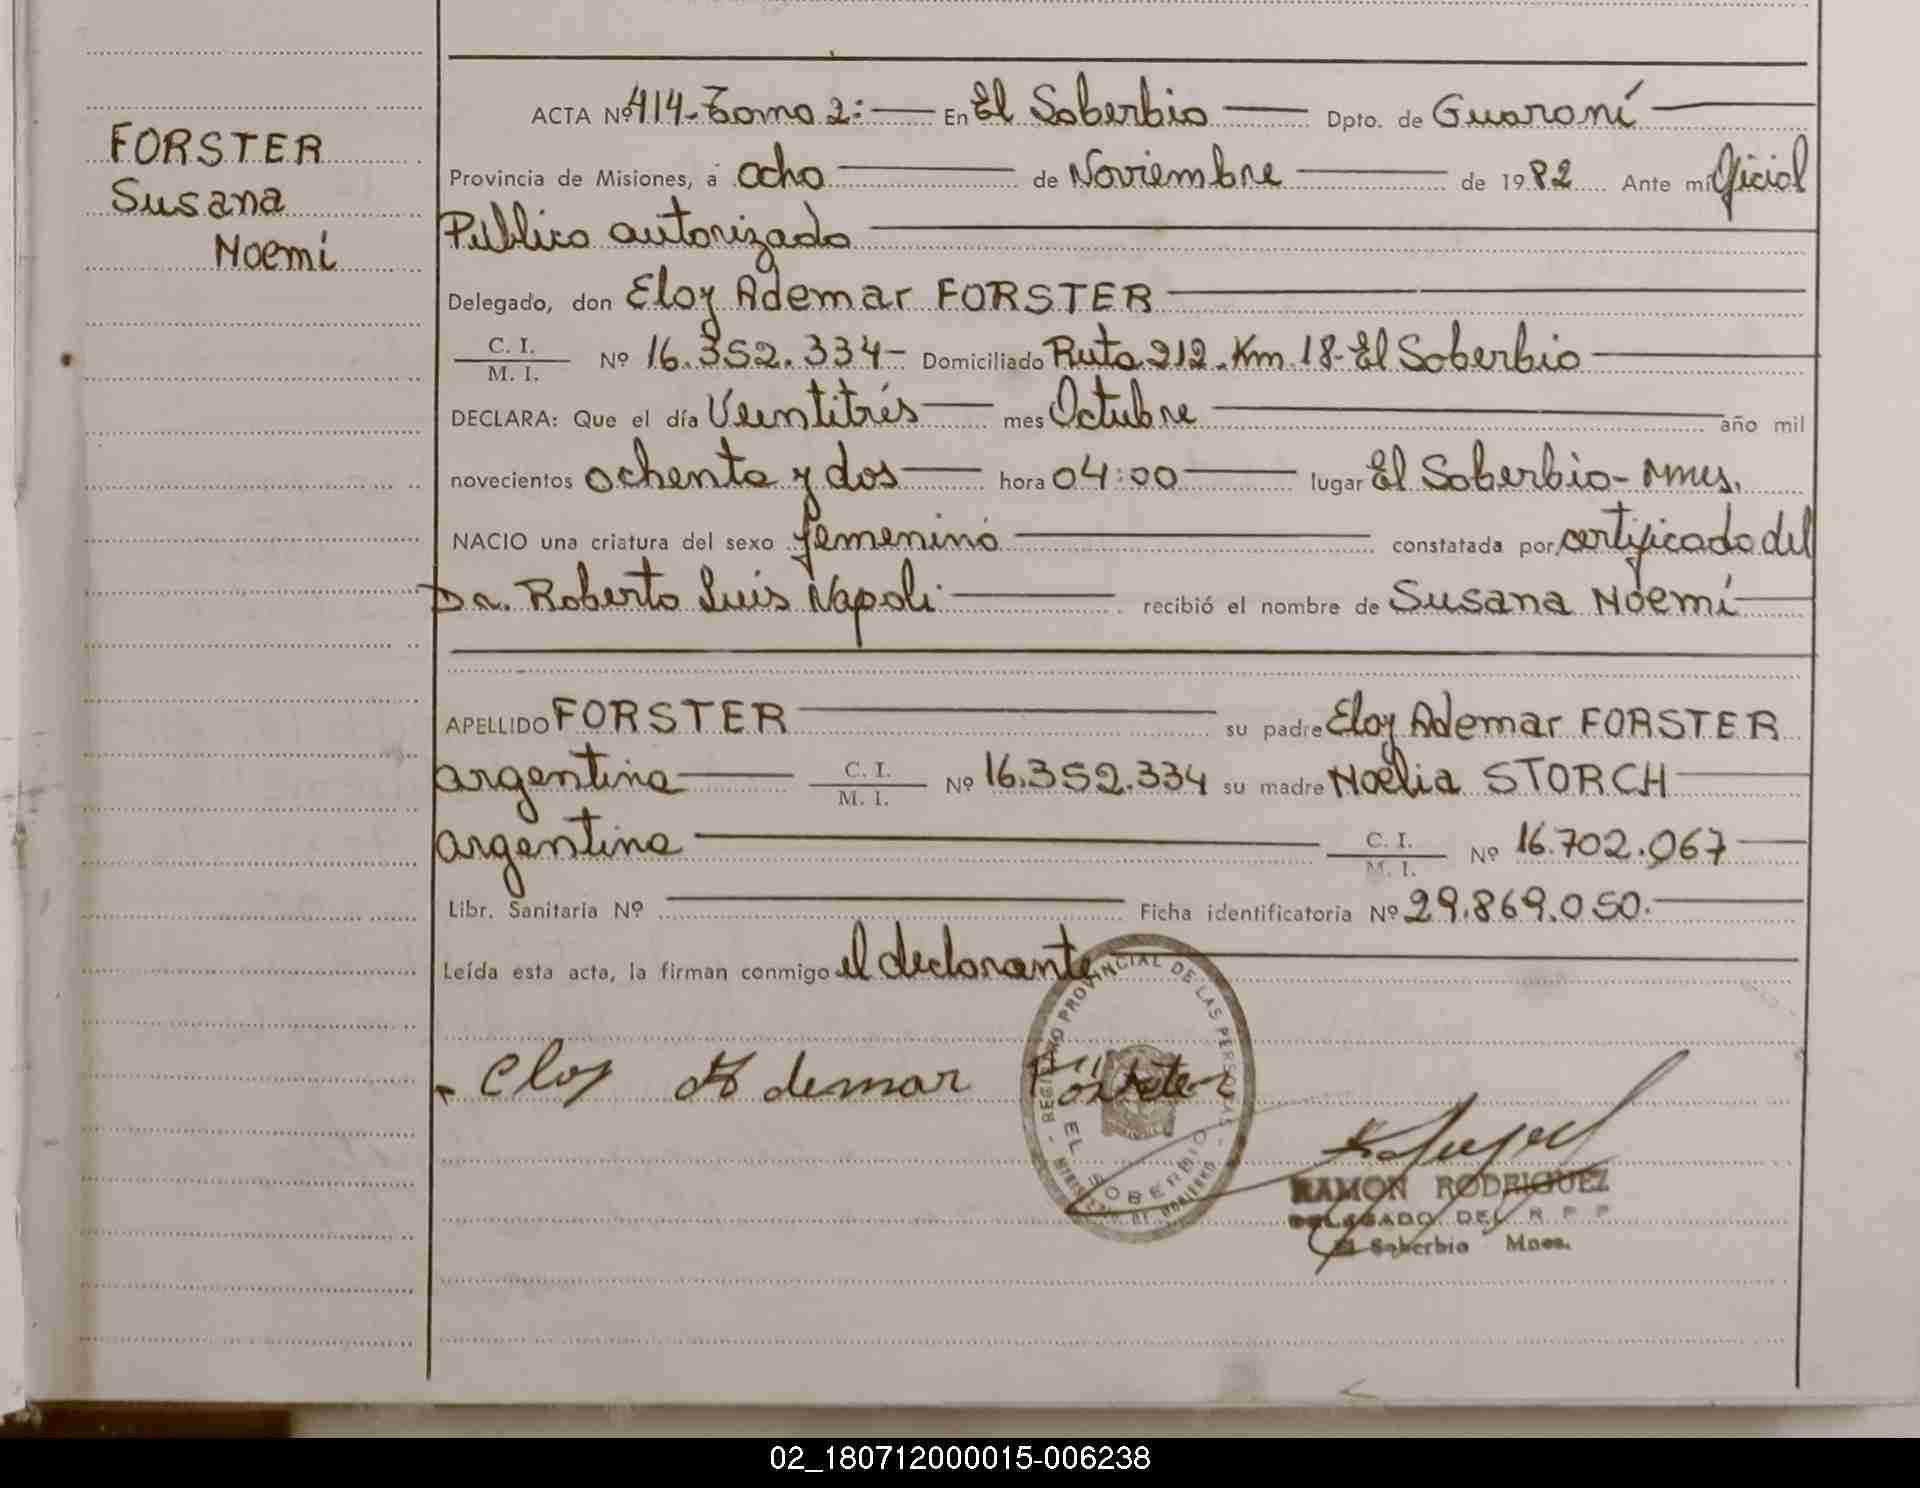 FORSTER
Susana
Noemi
ACTA Nº 414-Tomo 2:- En El Soberbio Dpto. de Guaraní
Provincia de Misiones, a ocho de Noviembre de 1982 Ante mi Oficial
Público autorizado
Delegado, don Eloy Ademar FORSTER
C. I.
M. I. Nº 16.352.334- Domiciliado Ruta 212-Km.18-El Soberbio
DECLARA: Que el día Veintitrés mes Octubre año mil
novecientos ochenta y dos hora 04:00 lugar El Soberbio- Mnes.
NACIO una criatura del sexo femenino constatada por certificado del
Dr. Roberto Luis Napoli recibió el nombre de Susana Noemí
APELLIDO FORSTER su padre Eloy Ademar FORSTER
argentina C. I.
M. I. Nº 16.352.334 su madre Noelia STORCH
argentina C. I.
M. I. Nº 16.702.067
Libr. Sanitaria Nº Ficha identificatoria Nº 29.869.050.
Leída esta acta, la firman conmigo el declarante
REGISTRO PROVINCIAL DE LAS PERSONAS
EL SOBERBIO
MINISTERIO DE GOBIERNO
Eloy Ademar Forster
RAMON RODRIGUEZ
DELEGADO DEL R P P
El Soberbio Mnes.
02_180712000015-006238